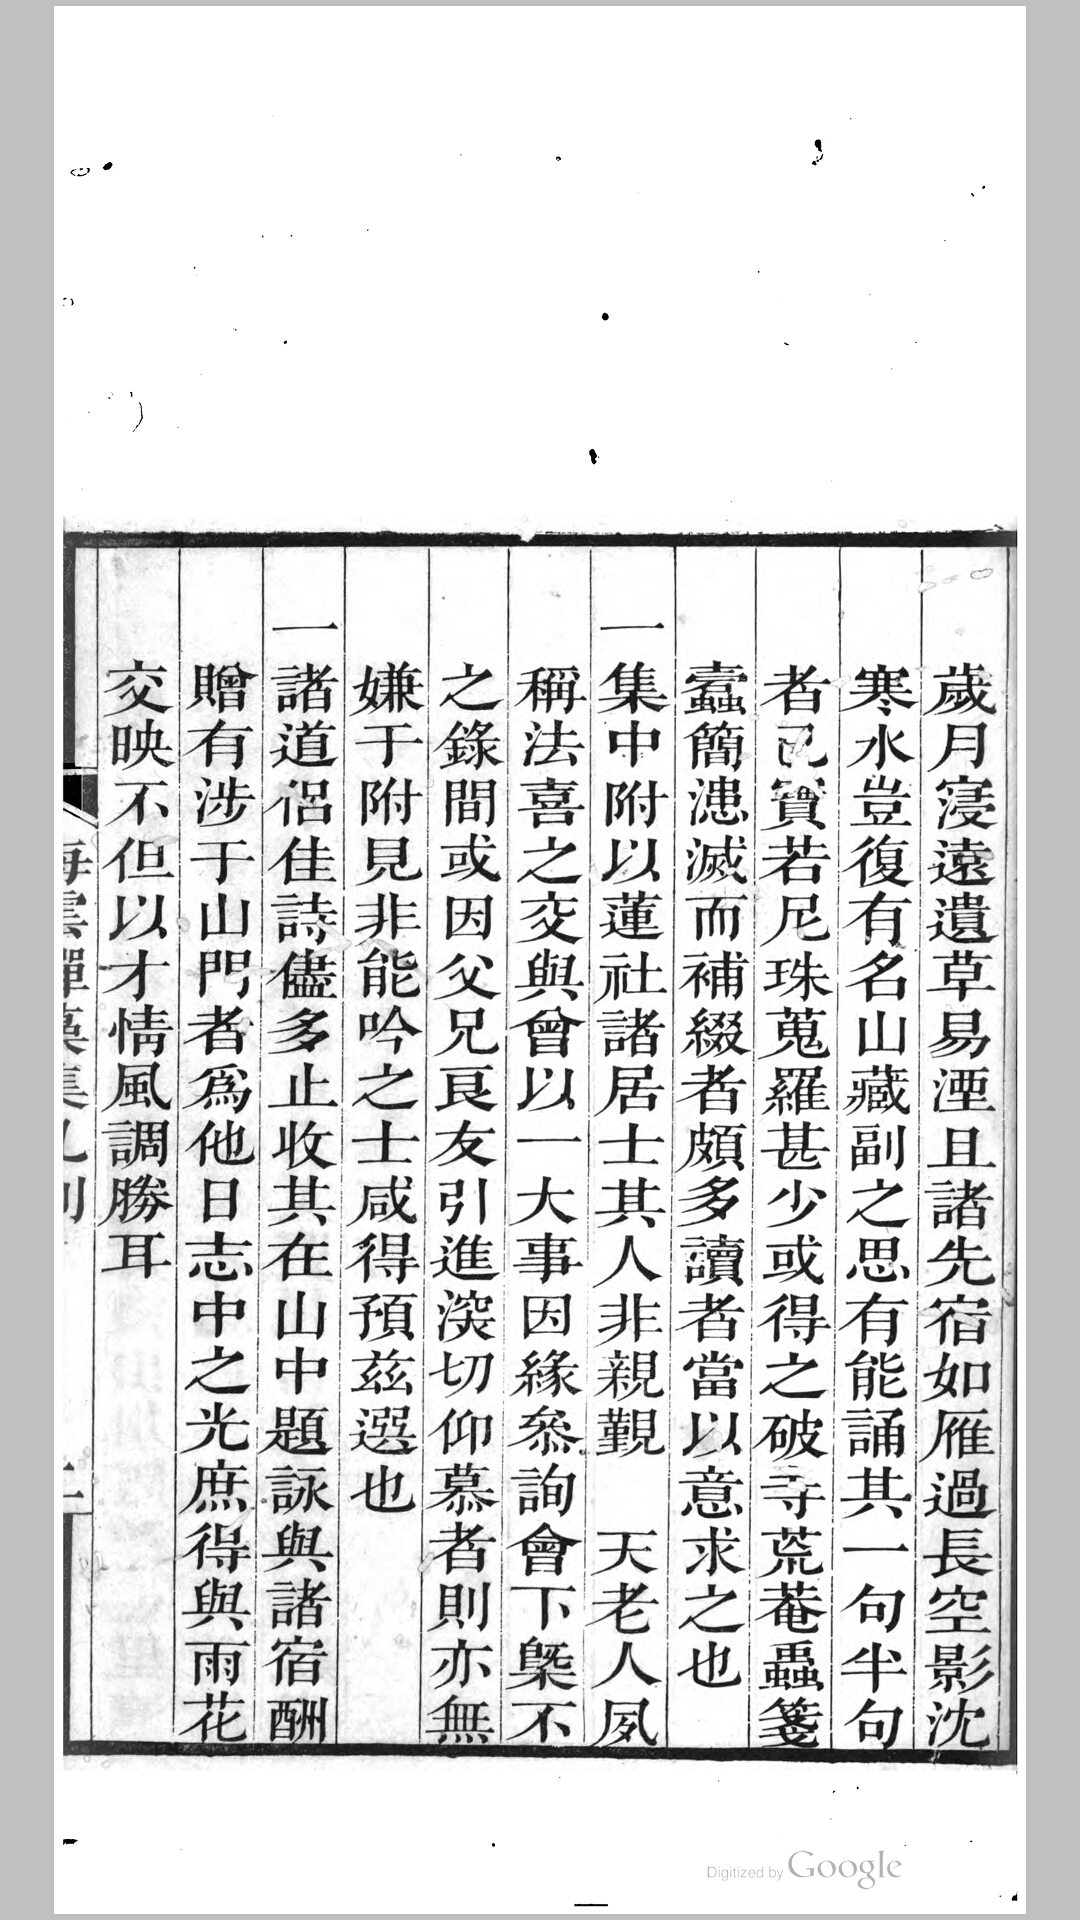 歲月寖遠遺草易湮且諸先宿如雁過長空影沈
寒水豈復有名山藏副之思有能誦其一句半句
者已寶若尼珠蒐羅甚少或得之破寺荒菴蟲箋
蠹簡漶滅而補綴者頗多讀者當以意求之也
一集中附以蓮社諸居士其人非親覲　天老人夙
稱法喜之交與曾以一大事因緣叅詢會下槩不
之錄間或因父兄良友引進深切仰慕者則亦無
嫌于附見非能吟之士咸得預茲選也
一諸道侶佳詩儘多止收其在山中題詠與諸宿酬
贈有涉于山門者爲他日志中之光庶得與雨花
交映不但以才情風調勝耳
海雲禪藻集凡例
二
Digitized by Google